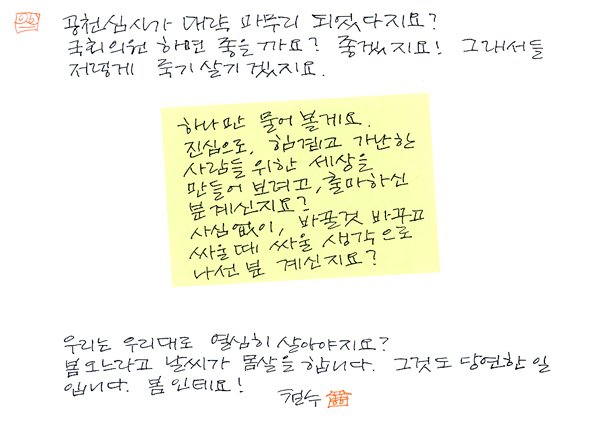 공천심사가 대략 마무리 되었다지요?
국회의원 하면 좋을까요? 좋겠지요! 그래서들
저렇게 죽기살기겠지요.
하나만 물어볼게요.
진심으로, 힘겹고 가난한
사람들을 위한 세상을
만들어 보려고, 출마하신
분 계신지요?
사심없이, 바꿀것 바꾸고
싸울 때 싸울 생각으로
나선 분 계신지요?
우리는 우리대로 열심히 살아야지요?
봄오느라고 날씨가 몸살을 합니다. 그것도 당연한 일
입니다. 봄인데요!
철수